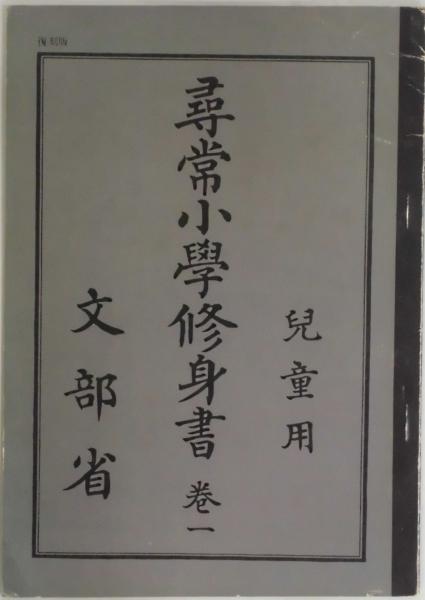 復刻版
兒童用
尋常小學修身書 卷一
文部省